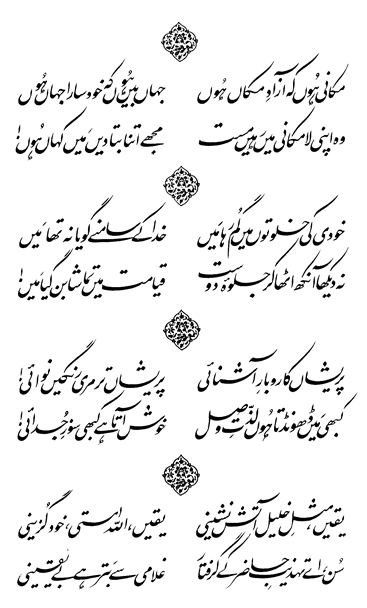 مکانی ہُوں کہ آزادِ مکاں ہُوں جہاں بیں ہُوں کہ خود سارا جہاں ہُوں
وہ اپنی لامکانی میں رہیں مست مجھے اتنا بتا دیں مَیں کہاں ہُوں!
خودی کی خلوتوں میں گُم رہا مَیں خدا کے سامنے گویا نہ تھا مَیں
نہ دیکھا آنکھ اٹھا کر جلوۂ دوست قیامت میں تماشا بن گیا مَیں!
پریشاں کاروبارِ آشنائی پریشاں تر مری رنگیں نوائی!
کبھی مَیں ڈھونڈتا ہُوں لذّتِ وصل خوش آتا ہے کبھی سوزِ جُدائی!
یقیں، مثلِ خلیل آتش نشینی یقیں، اللہ مستی، خود گُزینی
سُن، اے تہذیبِ حاضر کے گرفتار غلامی سے بَتر ہے بے یقینی